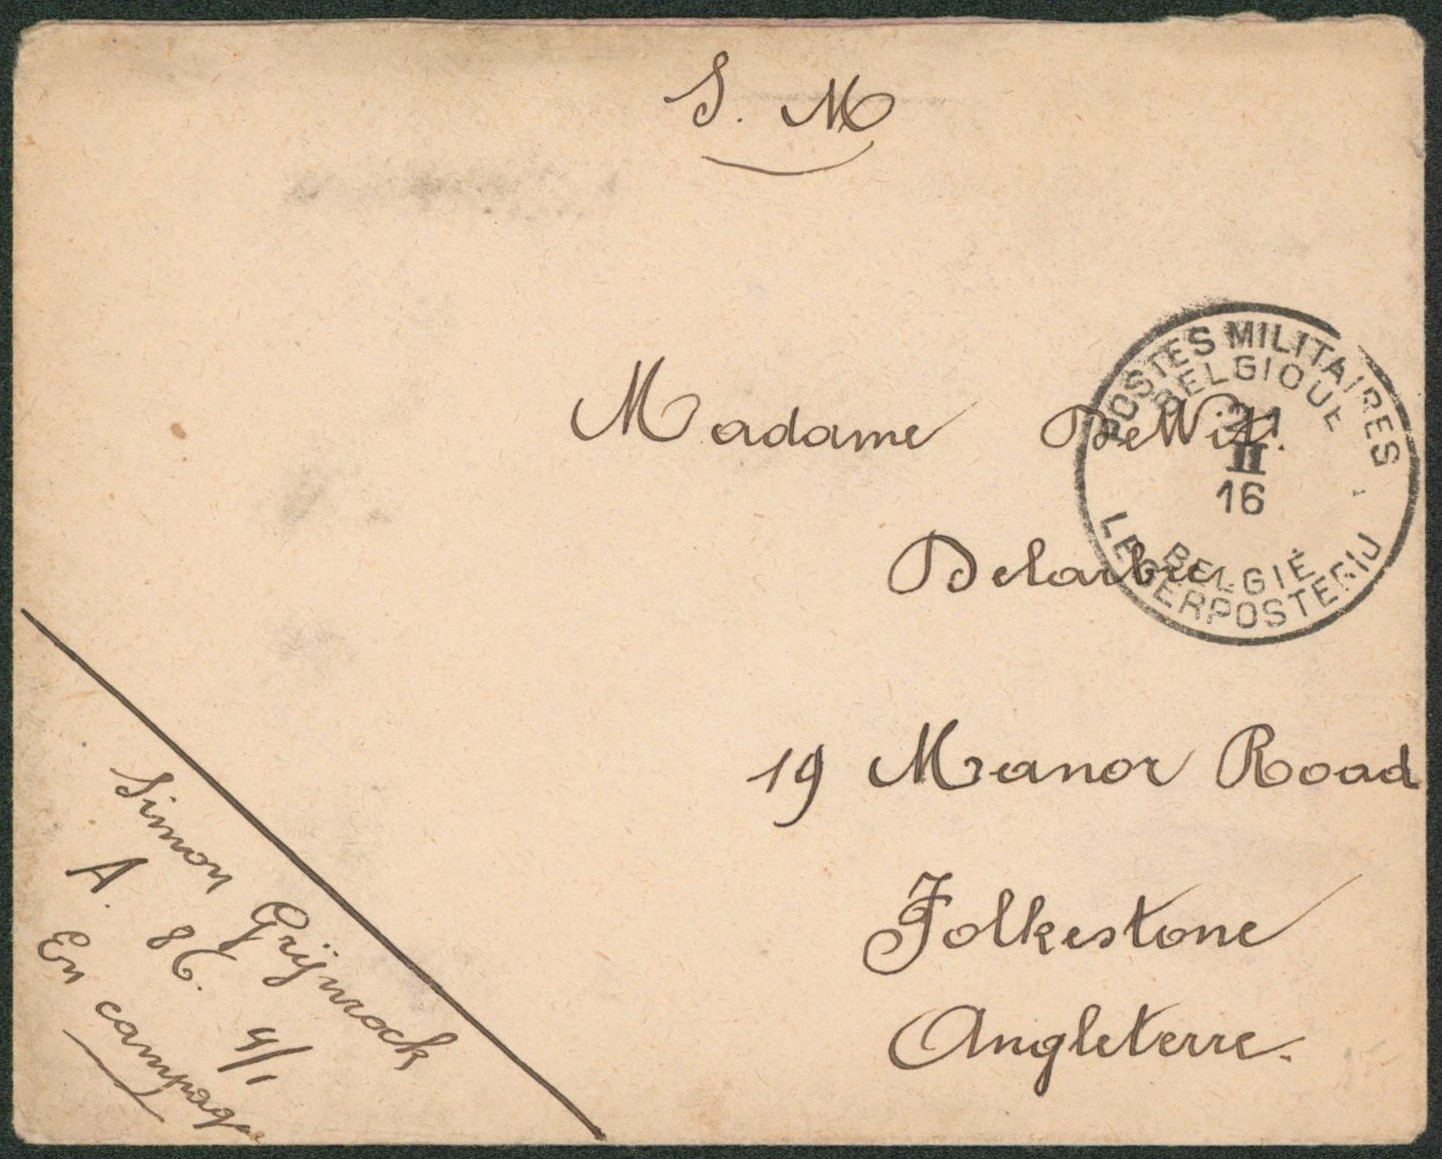 S. M
Madame DeWit.
Delarbre
19 Manor Road
Folkestone
Angleterre.
POSTES MILITAIRES
BELGIQUE
21
II
16
BELGIË
LEGERPOSTERIJ
Simon Grÿnrock
A. 86. 4/1
En campagne